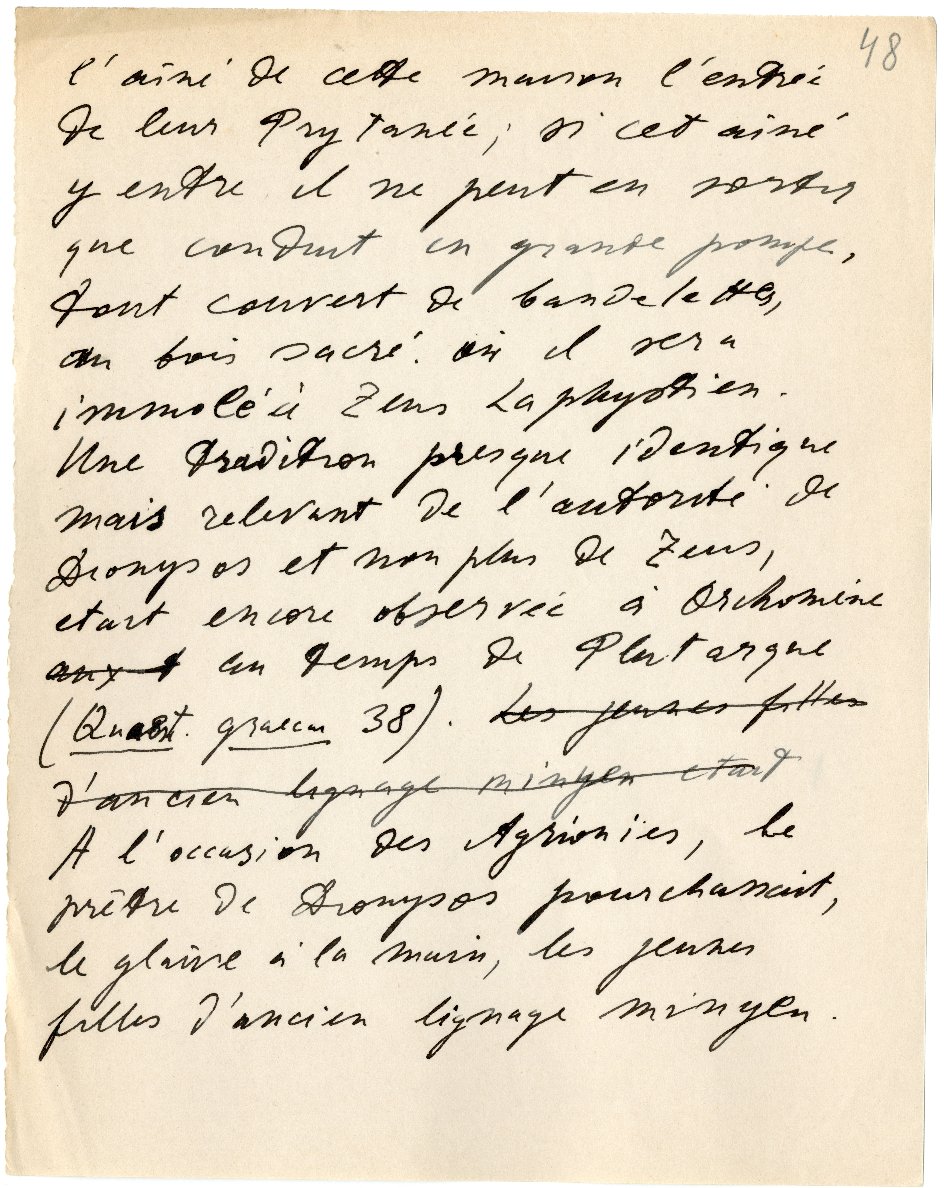 48
l'aîné de cette maison l'entrée
de leur Prytanée ; si cet aîné
y entre il ne peut en sortir
que conduit en grande pompe,
tout couvert de bandelettes,
au bois sacré où il sera
immolé à Zeus Laphystien.
Une tradition presque identique
mais relevant de l'autorité de
Dionysos et non plus de Zeus,
etait encore observée à Orchomène
aux t au temps de Plutarque
(Quaest. graecae 38). Les jeunes filles
d'ancien lignage minyen etait
A l'occasion des Agrionies, le
prêtre de Dionysos pourchassait,
le glaive à la main, les jeunes
filles d'ancien lignage minyen.